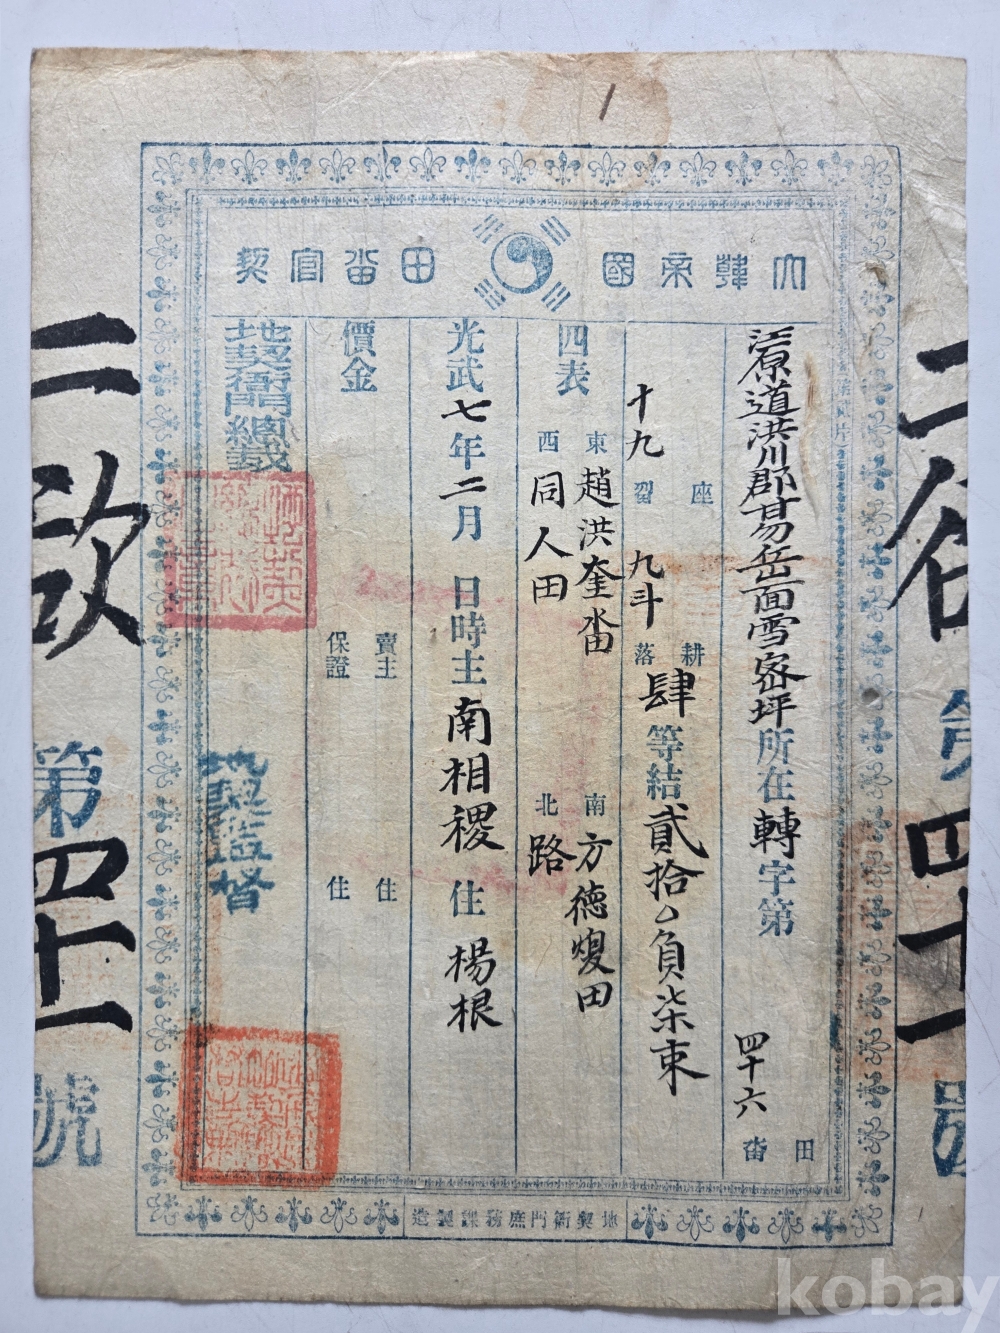 大韓帝國田畓官契
江原道洪川郡葛岳面雪密坪所在轉字第四十六 田畓
十九 座 㽝 九斗 耕 落 肆等結貳拾八負柒束
四表 東 趙洪奎畓 南 方德燮田
西 同人田 北 路
光武七年二月 日時主南相稷 住 楊根
價金 賣主 住
保證 住
地契衙門總裁
地契監督
地契衙門庶務課製造
第四十
號
kobay